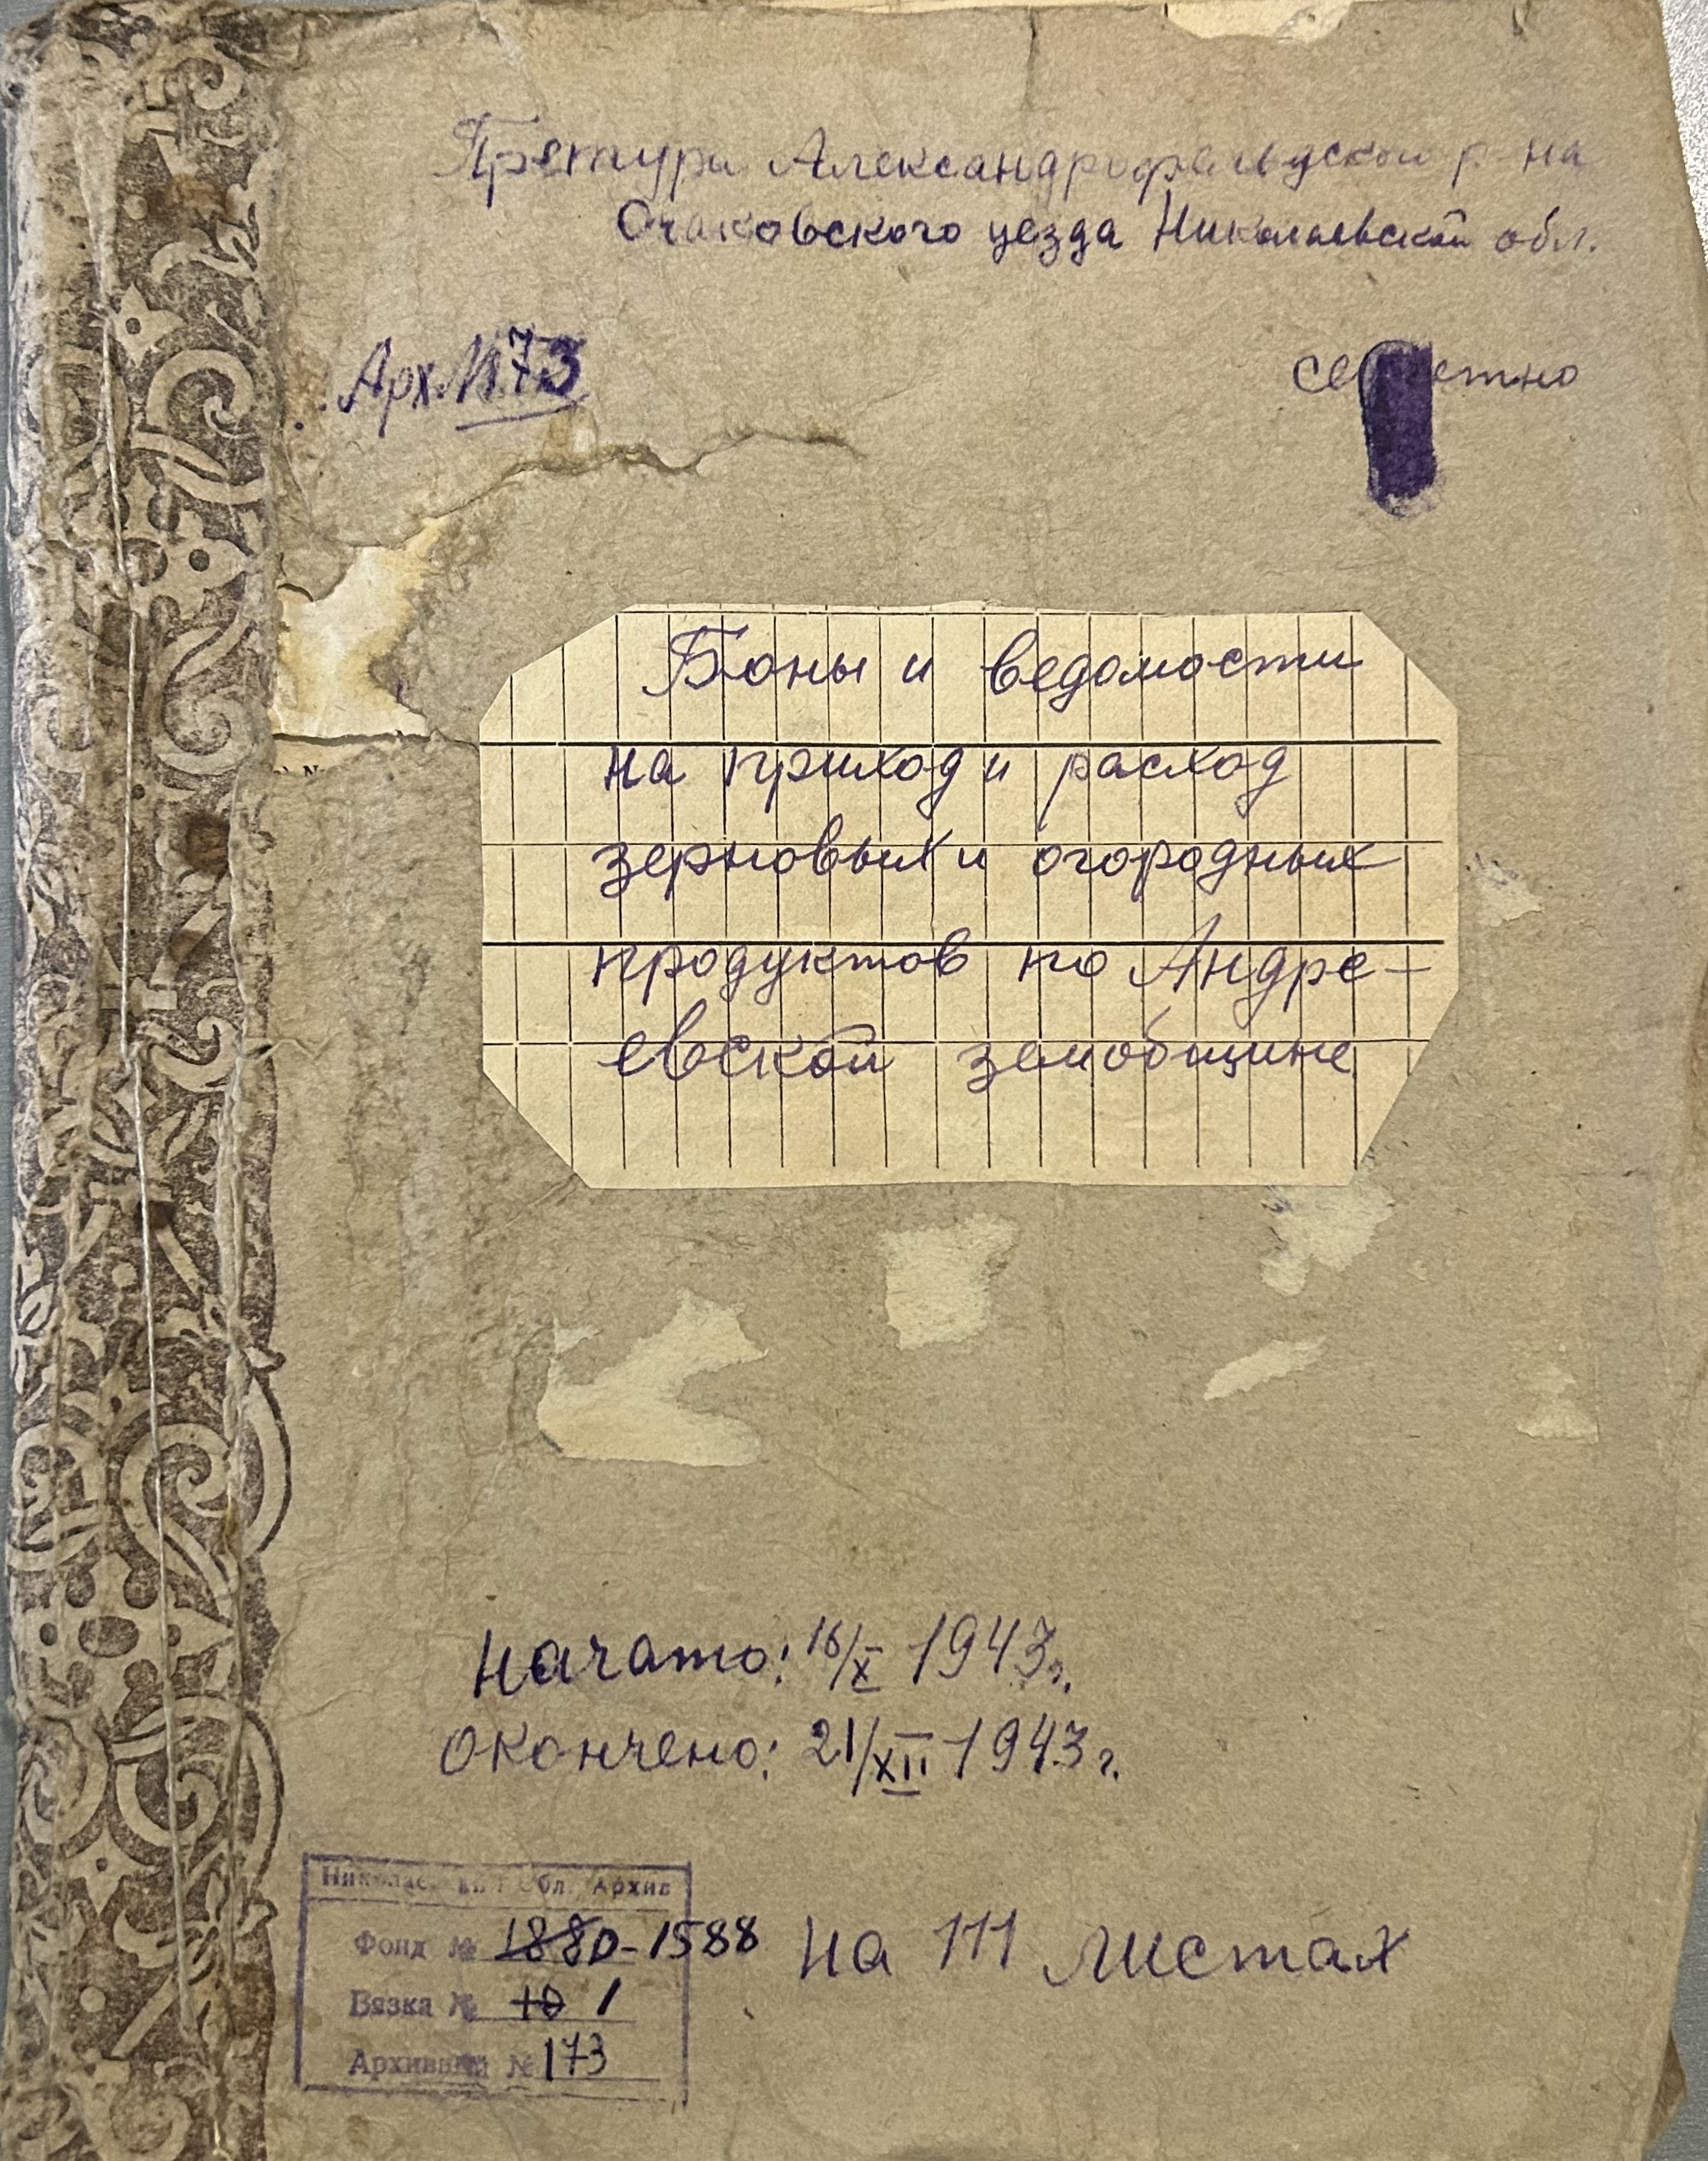 Претура Александрофельдской р-на
Очаковского уезда Николаевской обл.
Арх. № 73
секретно
Боны и ведомости
на приход и расход
зерновых и огородных
продуктов по Андре-
евской земобщине
начато: 16/X 1943 г.
окончено: 21/XII 1943 г.
Обл. Архив
Фонд № 1880-1588
Вязка № 10 1
Архивный № 173
на 111 листах